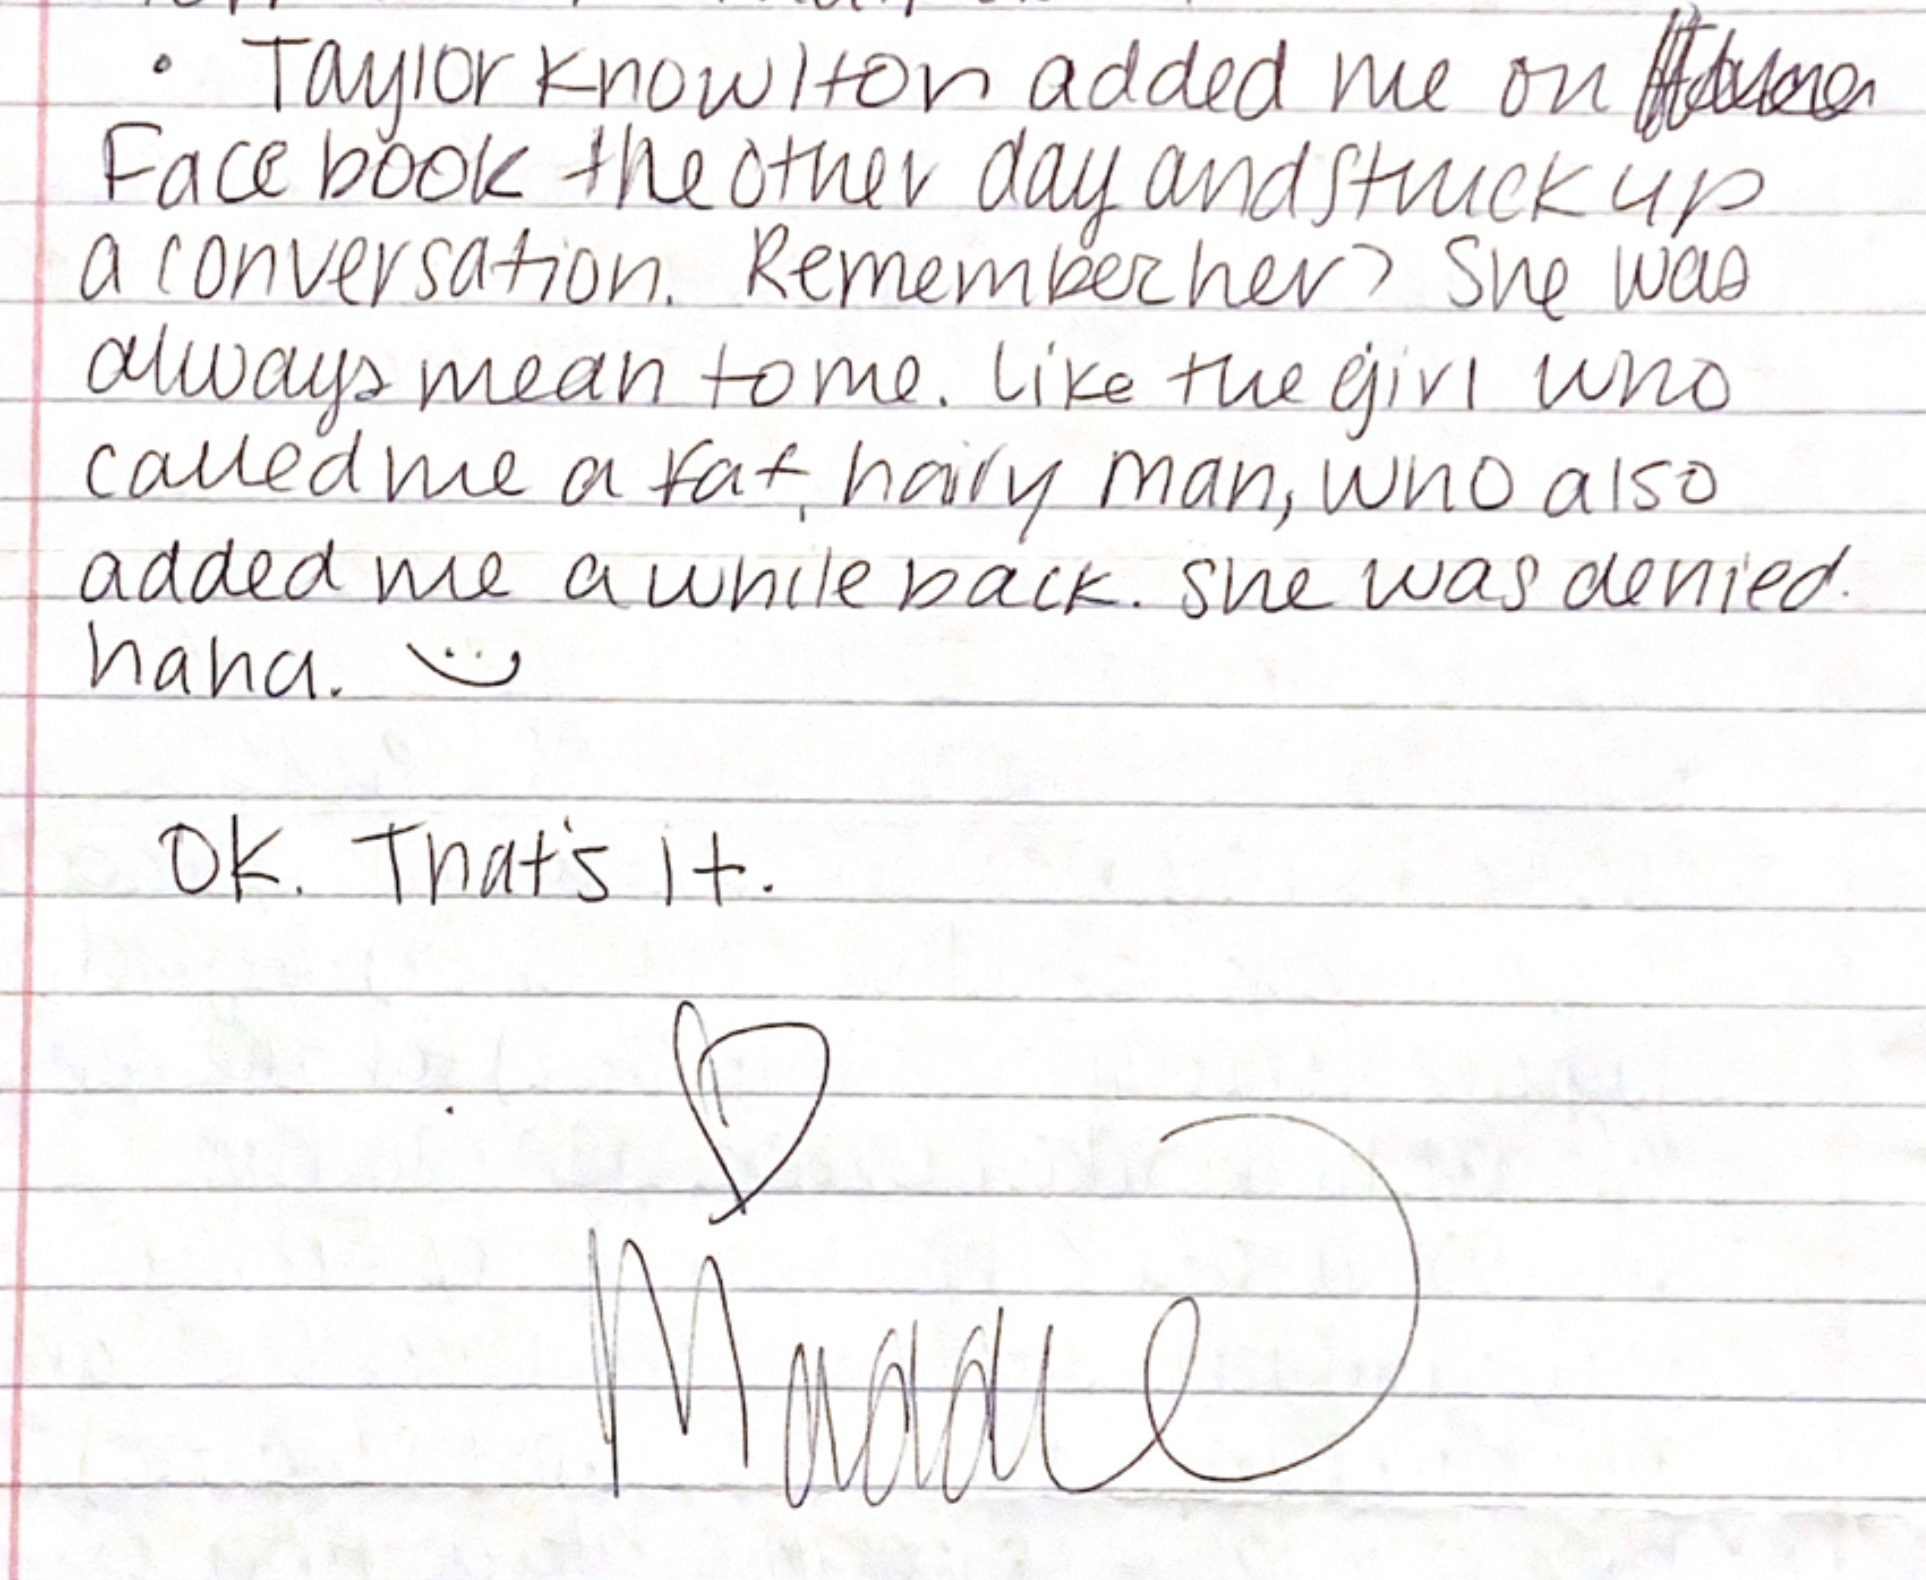 • Taylor Knowlton added me on
Facebook the other day and struck up
a conversation. Remember her? She was
always mean to me. Like the girl who
called me a fat, hairy man, who also
added me a while back. She was denied.
haha. :)
OK. That's it.
♡
Maddie